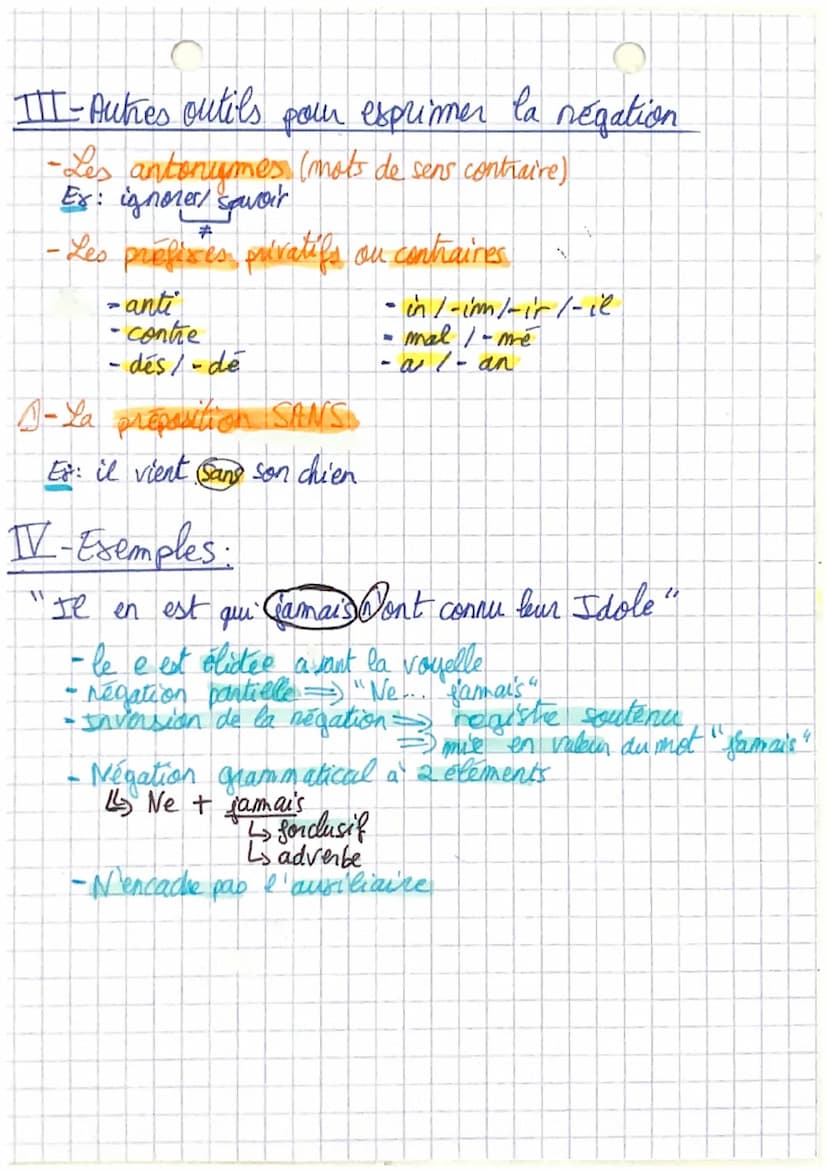 III - Autres outils pour exprimer la négation
- Les antonymes (mots de sens contraire)
Ex : ignorer / savoir
≠
- Les préfixes privatifs ou contraires
- anti
- contre
- dés / - dé
- in / - im / - ir / - il
- mal / - mé
- a / - an
1) - La préposition SANS
Ex : il vient sans son chien
IV - Exemples :
"Il en est qui jamais n'ont connu leur Idole"
- le e est élidée avant la voyelle
- négation partielle ⇒ "Ne... jamais"
- Inversion de la négation ⇒ registre soutenu
⇒ mise en valeur du mot "jamais"
- Négation grammatical à 2 éléments
↳ Ne + jamais
↳ forclusif
↳ adverbe
- N'encadre pas l'auxiliaire